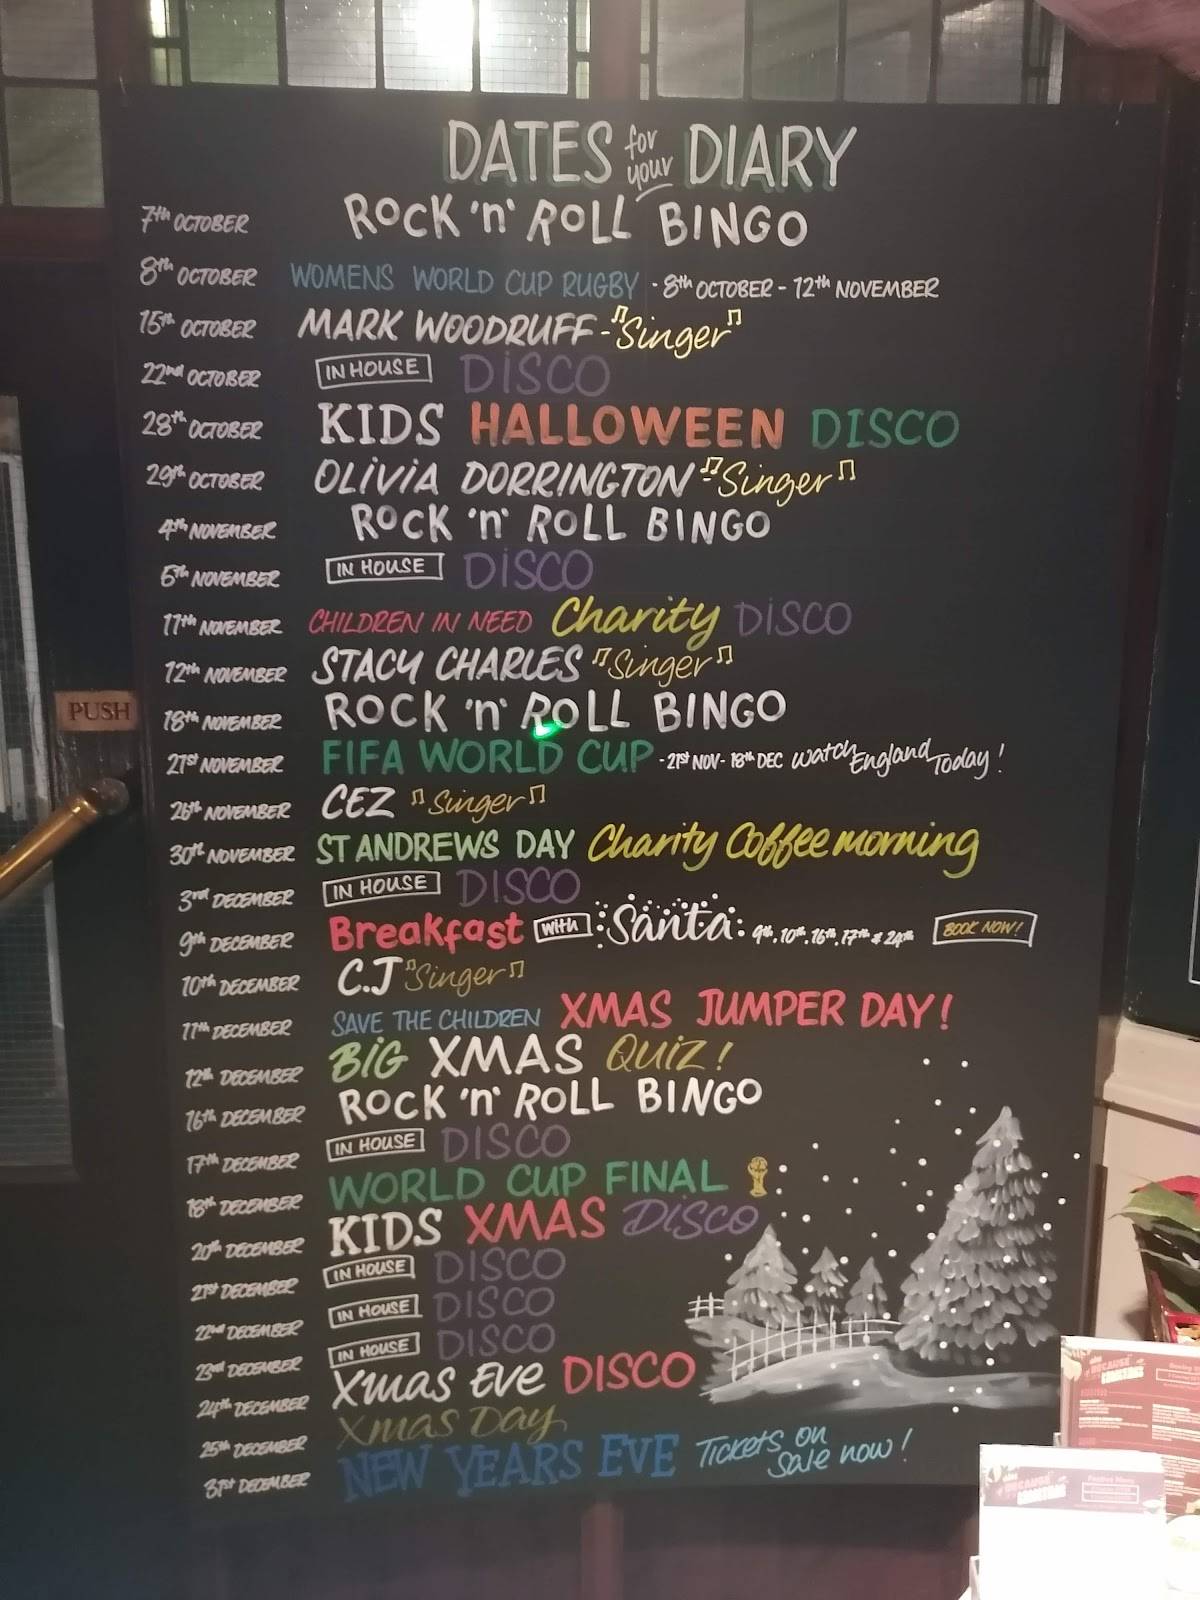 DATES for your DIARY
7th OCTOBER ROCK 'n' ROLL BINGO
8th OCTOBER WOMENS WORLD CUP RUGBY - 8th OCTOBER - 12th NOVEMBER
15th OCTOBER MARK WOODRUFF - "Singer"
22nd OCTOBER IN HOUSE DISCO
28th OCTOBER KIDS HALLOWEEN DISCO
29th OCTOBER OLIVIA DORRINGTON - Singer
4th NOVEMBER ROCK 'n' ROLL BINGO
5th NOVEMBER IN HOUSE DISCO
11th NOVEMBER CHILDREN IN NEED Charity DISCO
12th NOVEMBER STACY CHARLES Singer
18th NOVEMBER ROCK 'n' ROLL BINGO
21st NOVEMBER FIFA WORLD CUP - 21st NOV - 18th DEC Watch England Today!
26th NOVEMBER CEZ Singer
30th NOVEMBER ST ANDREWS DAY Charity Coffee morning
3rd DECEMBER IN HOUSE DISCO
9th DECEMBER Breakfast with Santa: 9th, 10th, 16th, 17th & 24th BOOK NOW!
10th DECEMBER C.J Singer
11th DECEMBER SAVE THE CHILDREN XMAS JUMPER DAY!
12th DECEMBER BIG XMAS QUIZ!
16th DECEMBER ROCK 'n' ROLL BINGO
17th DECEMBER IN HOUSE DISCO
18th DECEMBER WORLD CUP FINAL
20th DECEMBER KIDS XMAS DISCO
21st DECEMBER IN HOUSE DISCO
22nd DECEMBER IN HOUSE DISCO
23rd DECEMBER IN HOUSE DISCO
24th DECEMBER Xmas Eve DISCO
25th DECEMBER Xmas Day
31st DECEMBER NEW YEARS EVE Tickets on Sale now!
PUSH
BECAUSE
CHRISTMAS
Festive Menu
BECAUSE
CHRISTMAS